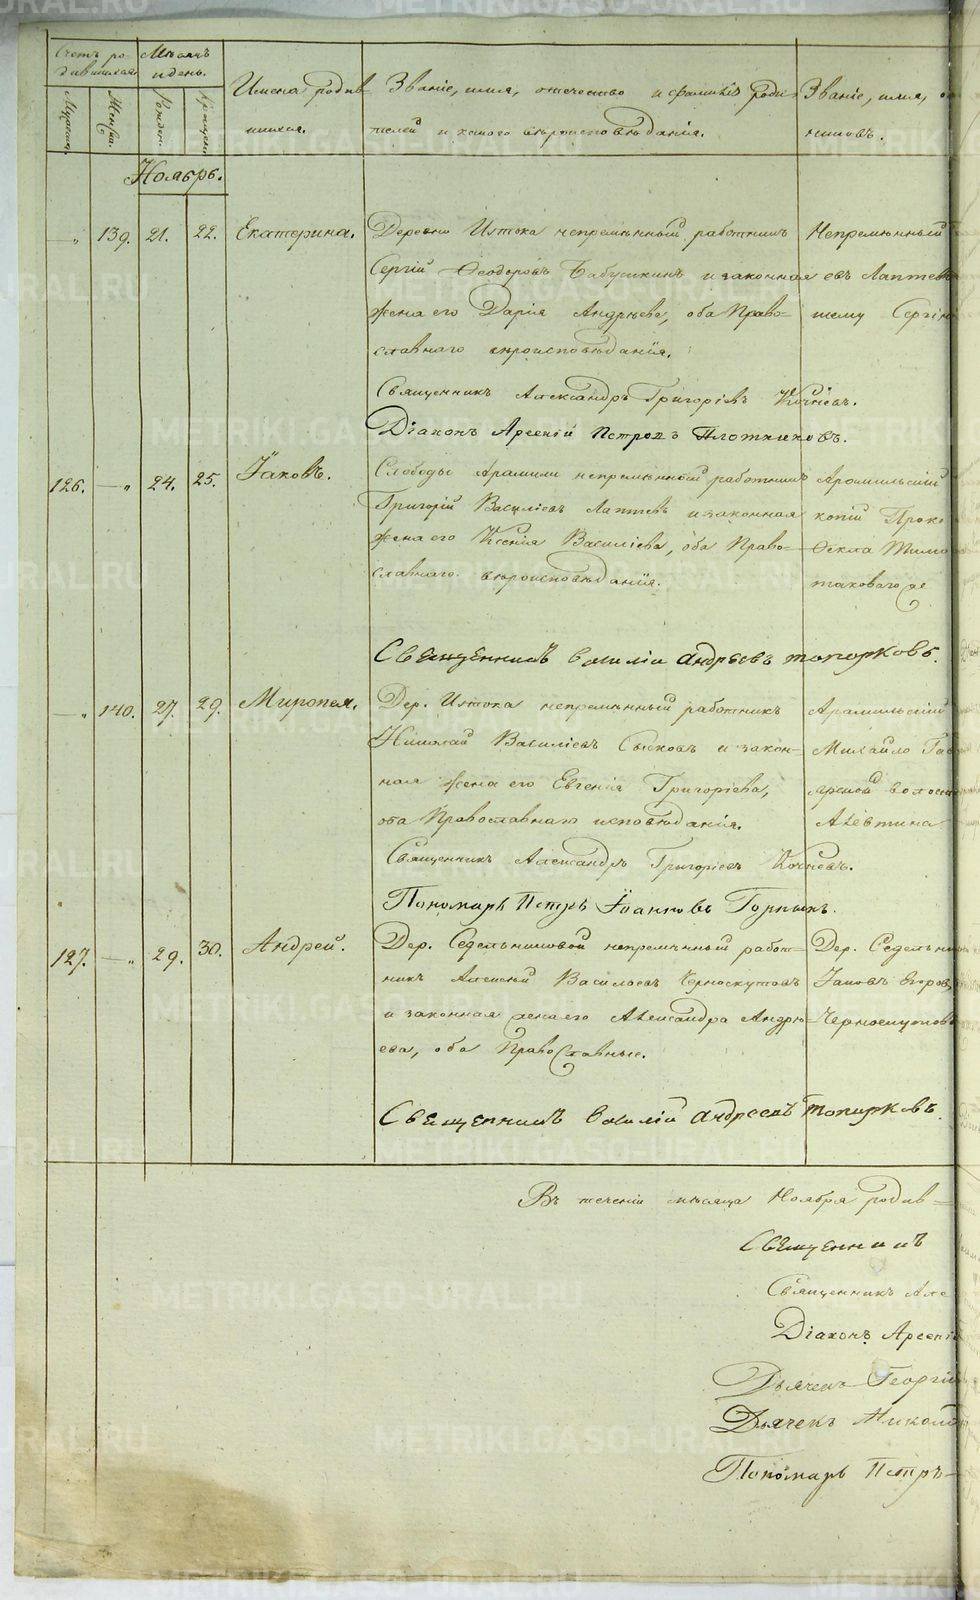 Счетъ ро-
дившихся.
Мѣсяцъ
и день.
Имена родив-
шихся.
Званіе, имя, отчество и фамилія роди-
телей и какого вѣроисповѣданія.
Званіе, имя,
Мужеска.
Женска.
Рожден.
Крещен.
Ноябрь.
—„ 139. 21. 22. Екатерина.
Деревни Истока непремѣнный работникъ
Сергій Ѳеодоровъ Бабушкинъ и законная
жена его Дарія Андрѣева, оба Право-
славнаго вѣроисповѣданія.
Священникъ Александръ Григоріевъ Кочневъ.
Діаконъ Арсеній Петровъ Плотниковъ.
Непремѣнный
евъ Лаптевъ
тему Сергію
126. —„ 24. 25. Іаковъ.
Слободы Арамили непремѣнный работникъ
Григорій Василіевъ Лаптевъ и законная
жена его Ксенія Василіева, оба Право-
славнаго вѣроисповѣданія.
Священникъ Василій Андреевъ Топорковъ.
Арамильскій
копій Проко
Ѳекла Тимо
таковаго же
—„ 140. 27. 29. Миропея.
Дер. Истока непремѣнный работникъ
Николай Василіевъ Сысковъ и закон-
ная жена его Евгенія Григоріева,
оба Православнаго исповѣданія.
Священникъ Александръ Григоріевъ Кочневъ.
Пономарь Петръ Іоанновъ Горныхъ.
Арамильскій
Михайло Гав
волости
Алевтина
127. —„ 29. 30. Андрей.
Дер. Седельниковой непремѣнный работ-
никъ Алексѣй Василіевъ Черноскутовъ
и законная жена его Александра Андрѣ-
ева, оба Православные.
Священникъ Василій Андреевъ Топорковъ.
Дер. Седельник
Іаковъ Егоров
Черноскутовы
Въ теченіи мѣсяца Ноября родив-
Священникъ
Священникъ Але
Діаконъ Арсеній
Дьячекъ Георгій
Дьячекъ Никола
Пономарь Петръ
METRIKI.GASO-URAL.RU